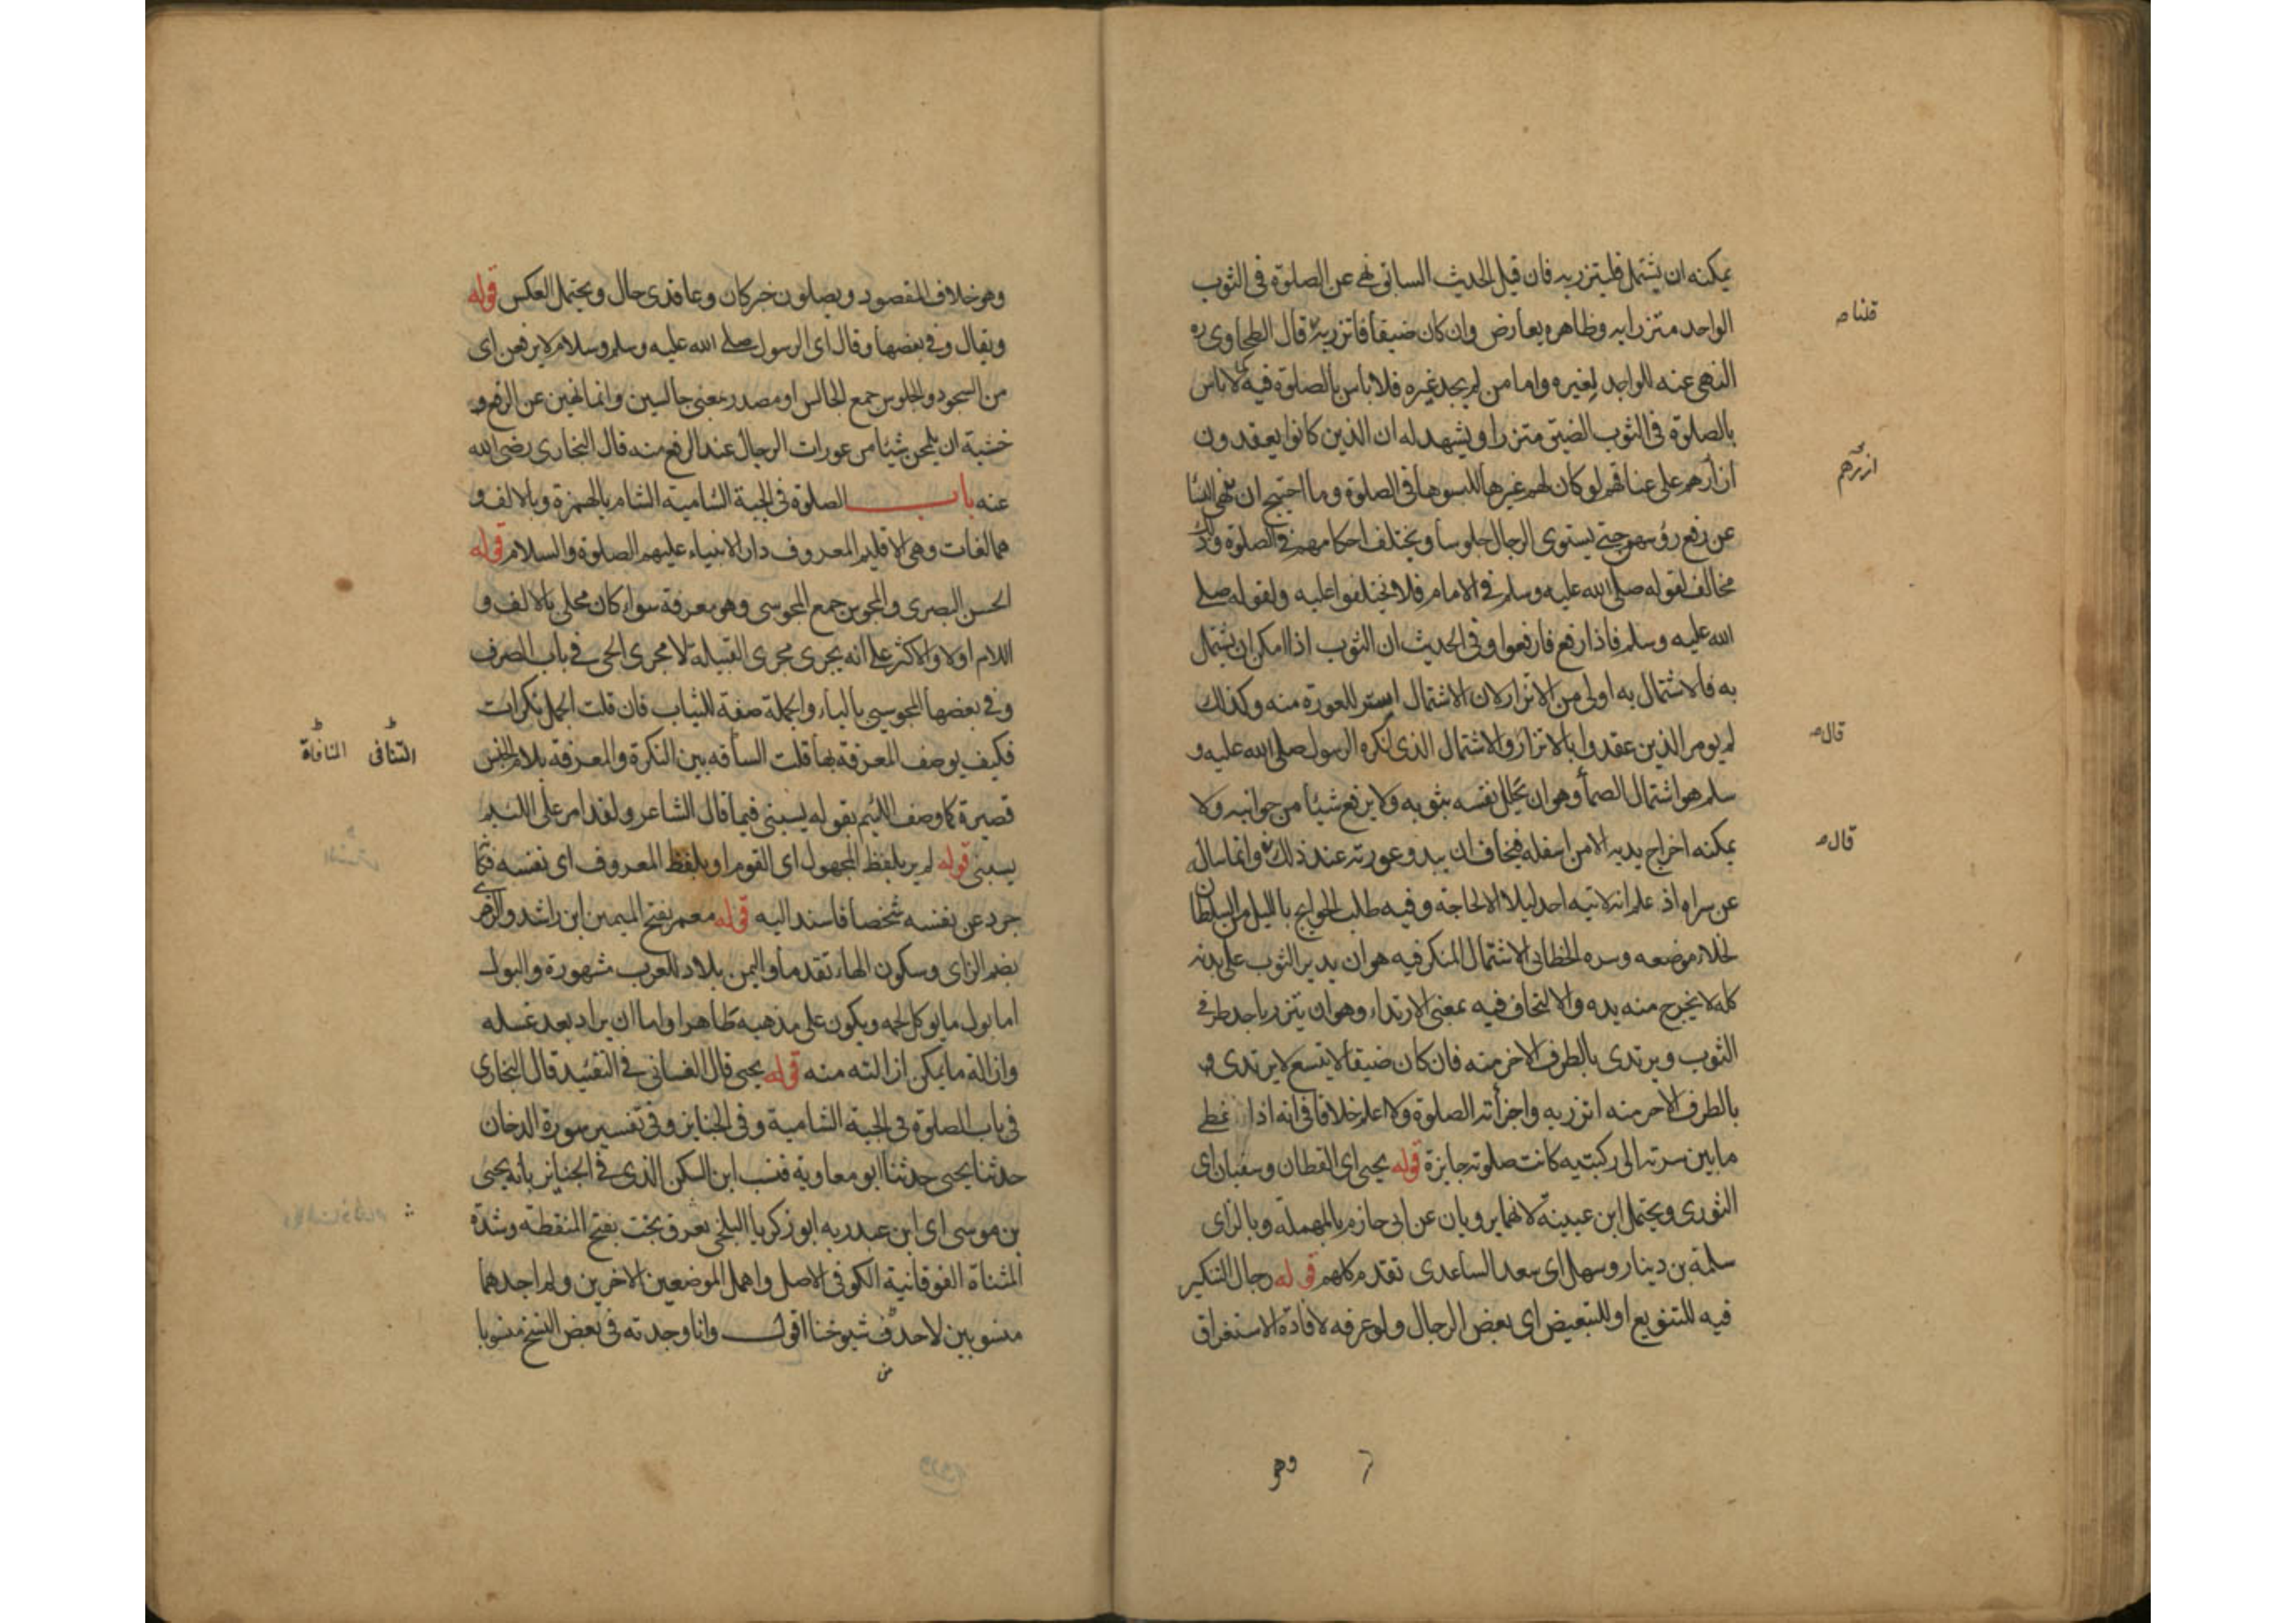 يمكنه ان يشتمل فليتزر به فان قيل الحديث السابق نهى عن الصلوة فى الثوب
الواحد متزرا به وظاهره يعارض وان كان ضيقا فاتزر به قال الطحاوى ره
النهى عنه للواجد لغيره واما من لم يجد غيره فلا باس بالصلوة فيه كما لا باس
بالصلوة فى الثوب الضيق متزرا ويشهد له ان الذين كانوا يعقدون
ازارهم على عناقهم لو كان لهم غيرها للبسوها فى الصلوة وما احتيج ان ينهى النسا
عن رفع رؤسهم حتى يستوى الرجال جلوسا ويختلف احكامهم فى الصلوة وذلك
مخالف لقوله صلى الله عليه وسلم فى الامام فلا تختلفوا عليه ولقوله صلى
الله عليه وسلم فاذا رفع فارفعوا وفى الحديث ان الثوب اذا امكن ان يشتمل
به فالاشتمال به اولى من الاتزار لان الاشتمال استر للعورة منه وكذلك
لم يومر الذين عقدوا بالاتزار والاشتمال الذى انكره الرسول صلى الله عليه و
سلم هو اشتمال الصمأ وهو ان يجلل نفسه بثوبه ولا يرفع شيئا من جوانبه ولا
يمكنه اخراج يديه الا من اسفله فيخاف ان يبدو عورته عند ذلك وانما ساله
عن سراه اذ علم انه لا تيه احد ليلا الا لحاجة وفيه طلب الحوائج بالليل من السلطان
لخلاء موضعه وسره الخطابى الاشتمال المنكر فيه هو ان يدير الثوب على بدنه
كله لا يخرج منه يده والالتحاف فيه بمعنى الارتداء وهو ان يتزر باحد طرفى
الثوب ويرتدى بالطرف الاخر منه فان كان ضيقا لا يتسع لا يرتدى
بالطرف الاخر منه اتزر به واجزأته الصلوة ولا اعلم خلافا فى انه اذا غطى
ما بين سرته الى ركبتيه كانت صلوته جايزة قوله يحيى اى القطان وسفيان اى
الثورى ويحتمل ابن عيينه لانهما يرويان عن ابى حازم بالمهمله وبالزاى
سلمة بن دينار وسهل اى سعد الساعدى تقدم كلهم قوله رجال التنكير
فيه للتنويع او للتبعيض اى بعض الرجال ولو عرفه لافادة الاستغراق
قلنا صـ
ازرهم
قال صـ
قال صـ
وهو
وهو خلاف المقصود ويصلون خبر كان وعاقدى حال ويحتمل العكس قوله
ويقال وفى بعضها وقال اى الرسول صلى الله عليه وسلم وسلام لا يرفعن اى
من السجود والجلوس جمع الجالس او مصدر بمعنى جالسين وانما نهين عن الرفع
خشية ان يلمحن شيئا من عورات الرجال عند الرفع منه قال البخارى رضى الله
عنه باب الصلوة فى الجبة الشامية الشام بالهمزة وبالالف و
هما لغات وهى الاقليم المعروف دار الانبياء عليهم الصلوة والسلام قوله
الحسن البصرى والمجوس جمع المجوسى وهو معرفة سواء كان محلى بالالف و
اللام اولا والاكثر على انه يجرى مجرى القبيلة لا مجرى الحى فى باب الصرف
وفى بعضها المجوسى بالياء والجملة صفة للثياب فان قلت الجمل نكرات
فكيف يوصف المعرفة بها قلت السأفه بين النكرة والمعرفة بلام الجنس
قصيرة كما وصف اللئيم بقوله يسبنى فيما قال الشاعر ولقد امر على اللئيم
يسبنى قوله لم ير بلفظ المجهول اى القوم او بلفظ المعروف اى نفسه فكما
جرد عن نفسه شخصا فاسند اليه قوله معمر بفتح الميمين ابن راشد والزهرى
بضم الزاى وسكون الهاء تقدما واليمن بلاد للعرب مشهورة والبول
اما بول ما يوكل لحمه ويكون على مذهبه طاهرا واما ان يراد بعد غسله
وازالة ما يمكن ازالته منه قوله يحيى قال الغسانى فى التقئيد قال البخارى
فى باب الصلوة فى الجبة الشامية وفى الجنايز وفى تفسير سورة الدخان
حدثنا يحيى حدثنا ابو معاوية فنسب ابن السكن الذى فى الجنايز بانه يحيى
بن موسى اى ابن عبد ربه ابو زكريا البلخى يعرف بخت بفتح المنقطة وشدة
المثناة الفوقانية الكوفى الاصل واهمل الموضعين الاخرين ولم اجدهما
منسوبين لاحد من شيوخنا اقول وانا وجدته فى بعض النسخ منسوبا
التنافى المنافاة